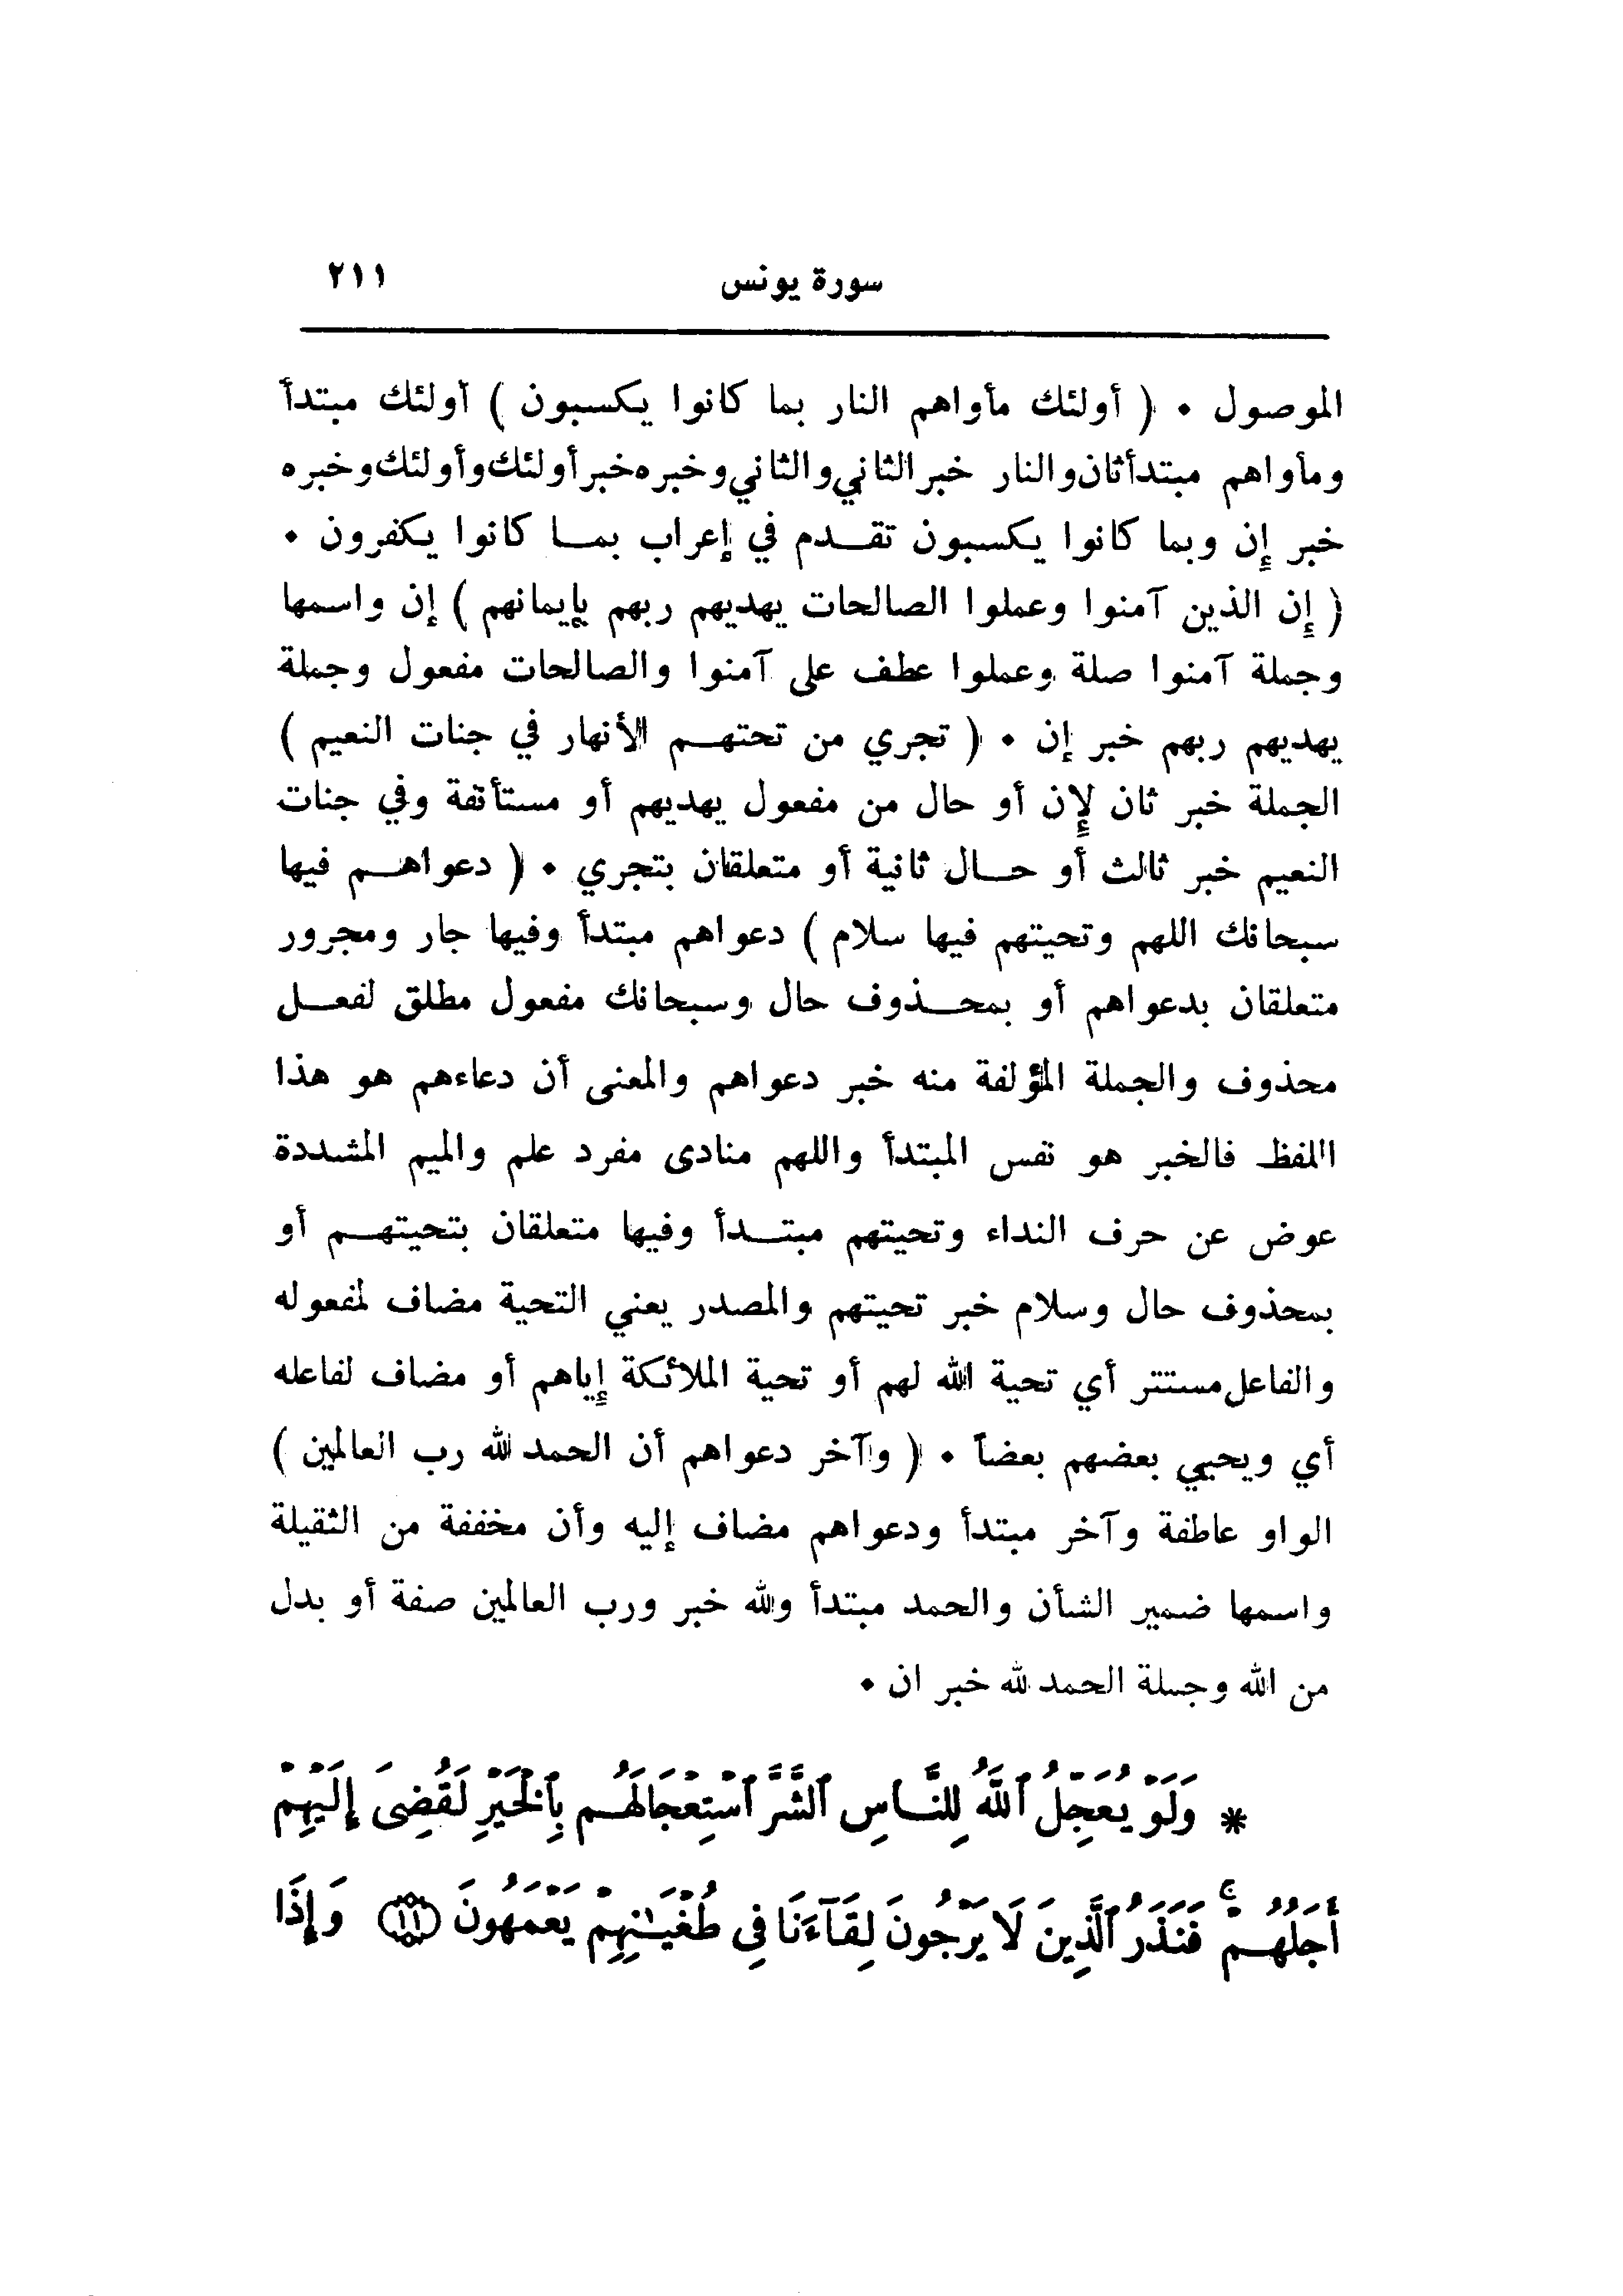 سورة يونس ٢١١
الموصول . ( أولئك مأواهم النار بما كانوا يكسبون ) أولئك مبتدأ
ومأواهم مبتدأ ثان والنار خبر الثاني والثاني وخبره خبر أولئك وأولئك وخبره
خبر إن وبما كانوا يكسبون تقدم في إعراب بما كانوا يكفرون .
( إن الذين آمنوا وعملوا الصالحات يهديهم ربهم بإيمانهم ) إن واسمها
وجملة آمنوا صلة وعملوا عطف على آمنوا والصالحات مفعول وجملة
يهديهم ربهم خبر إن . ( تجري من تحتهم الأنهار في جنات النعيم )
الجملة خبر ثان لإن أو حال من مفعول يهديهم أو مستأنفة وفي جنات
النعيم خبر ثالث أو حال ثانية أو متعلقان بتجري . ( دعواهم فيها
سبحانك اللهم وتحيتهم فيها سلام ) دعواهم مبتدأ وفيها جار ومجرور
متعلقان بدعواهم أو بمحذوف حال وسبحانك مفعول مطلق لفعل
محذوف والجملة المؤلفة منه خبر دعواهم والمعنى أن دعاءهم هو هذا
اللفظ فالخبر هو نفس المبتدأ واللهم منادى مفرد علم والميم المشددة
عوض عن حرف النداء وتحيتهم مبتدأ وفيها متعلقان بتحيتهم أو
بمحذوف حال وسلام خبر تحيتهم والمصدر يعني التحية مضاف لمفعوله
والفاعل مستتر أي تحية الله لهم أو تحية الملائكة إياهم أو مضاف لفاعله
أي ويحيي بعضهم بعضاً . ( وآخر دعواهم أن الحمد لله رب العالمين )
الواو عاطفة وآخر مبتدأ ودعواهم مضاف إليه وأن مخففة من الثقيلة
واسمها ضمير الشأن والحمد مبتدأ ولله خبر ورب العالمين صفة أو بدل
من الله وجملة الحمد لله خبر ان .
* وَلَوْ يُعَجِّلُ ٱللَّهُ لِلنَّاسِ ٱلشَّرَّ ٱسْتِعْجَالَهُم بِٱلْخَيْرِ لَقُضِىَ إِلَيْهِمْ
أَجَلُهُمْ ۖ فَنَذَرُ ٱلَّذِينَ لَا يَرْجُونَ لِقَآءَنَا فِى طُغْيَـٰنِهِمْ يَعْمَهُونَ ﴿١١﴾ وَإِذَا